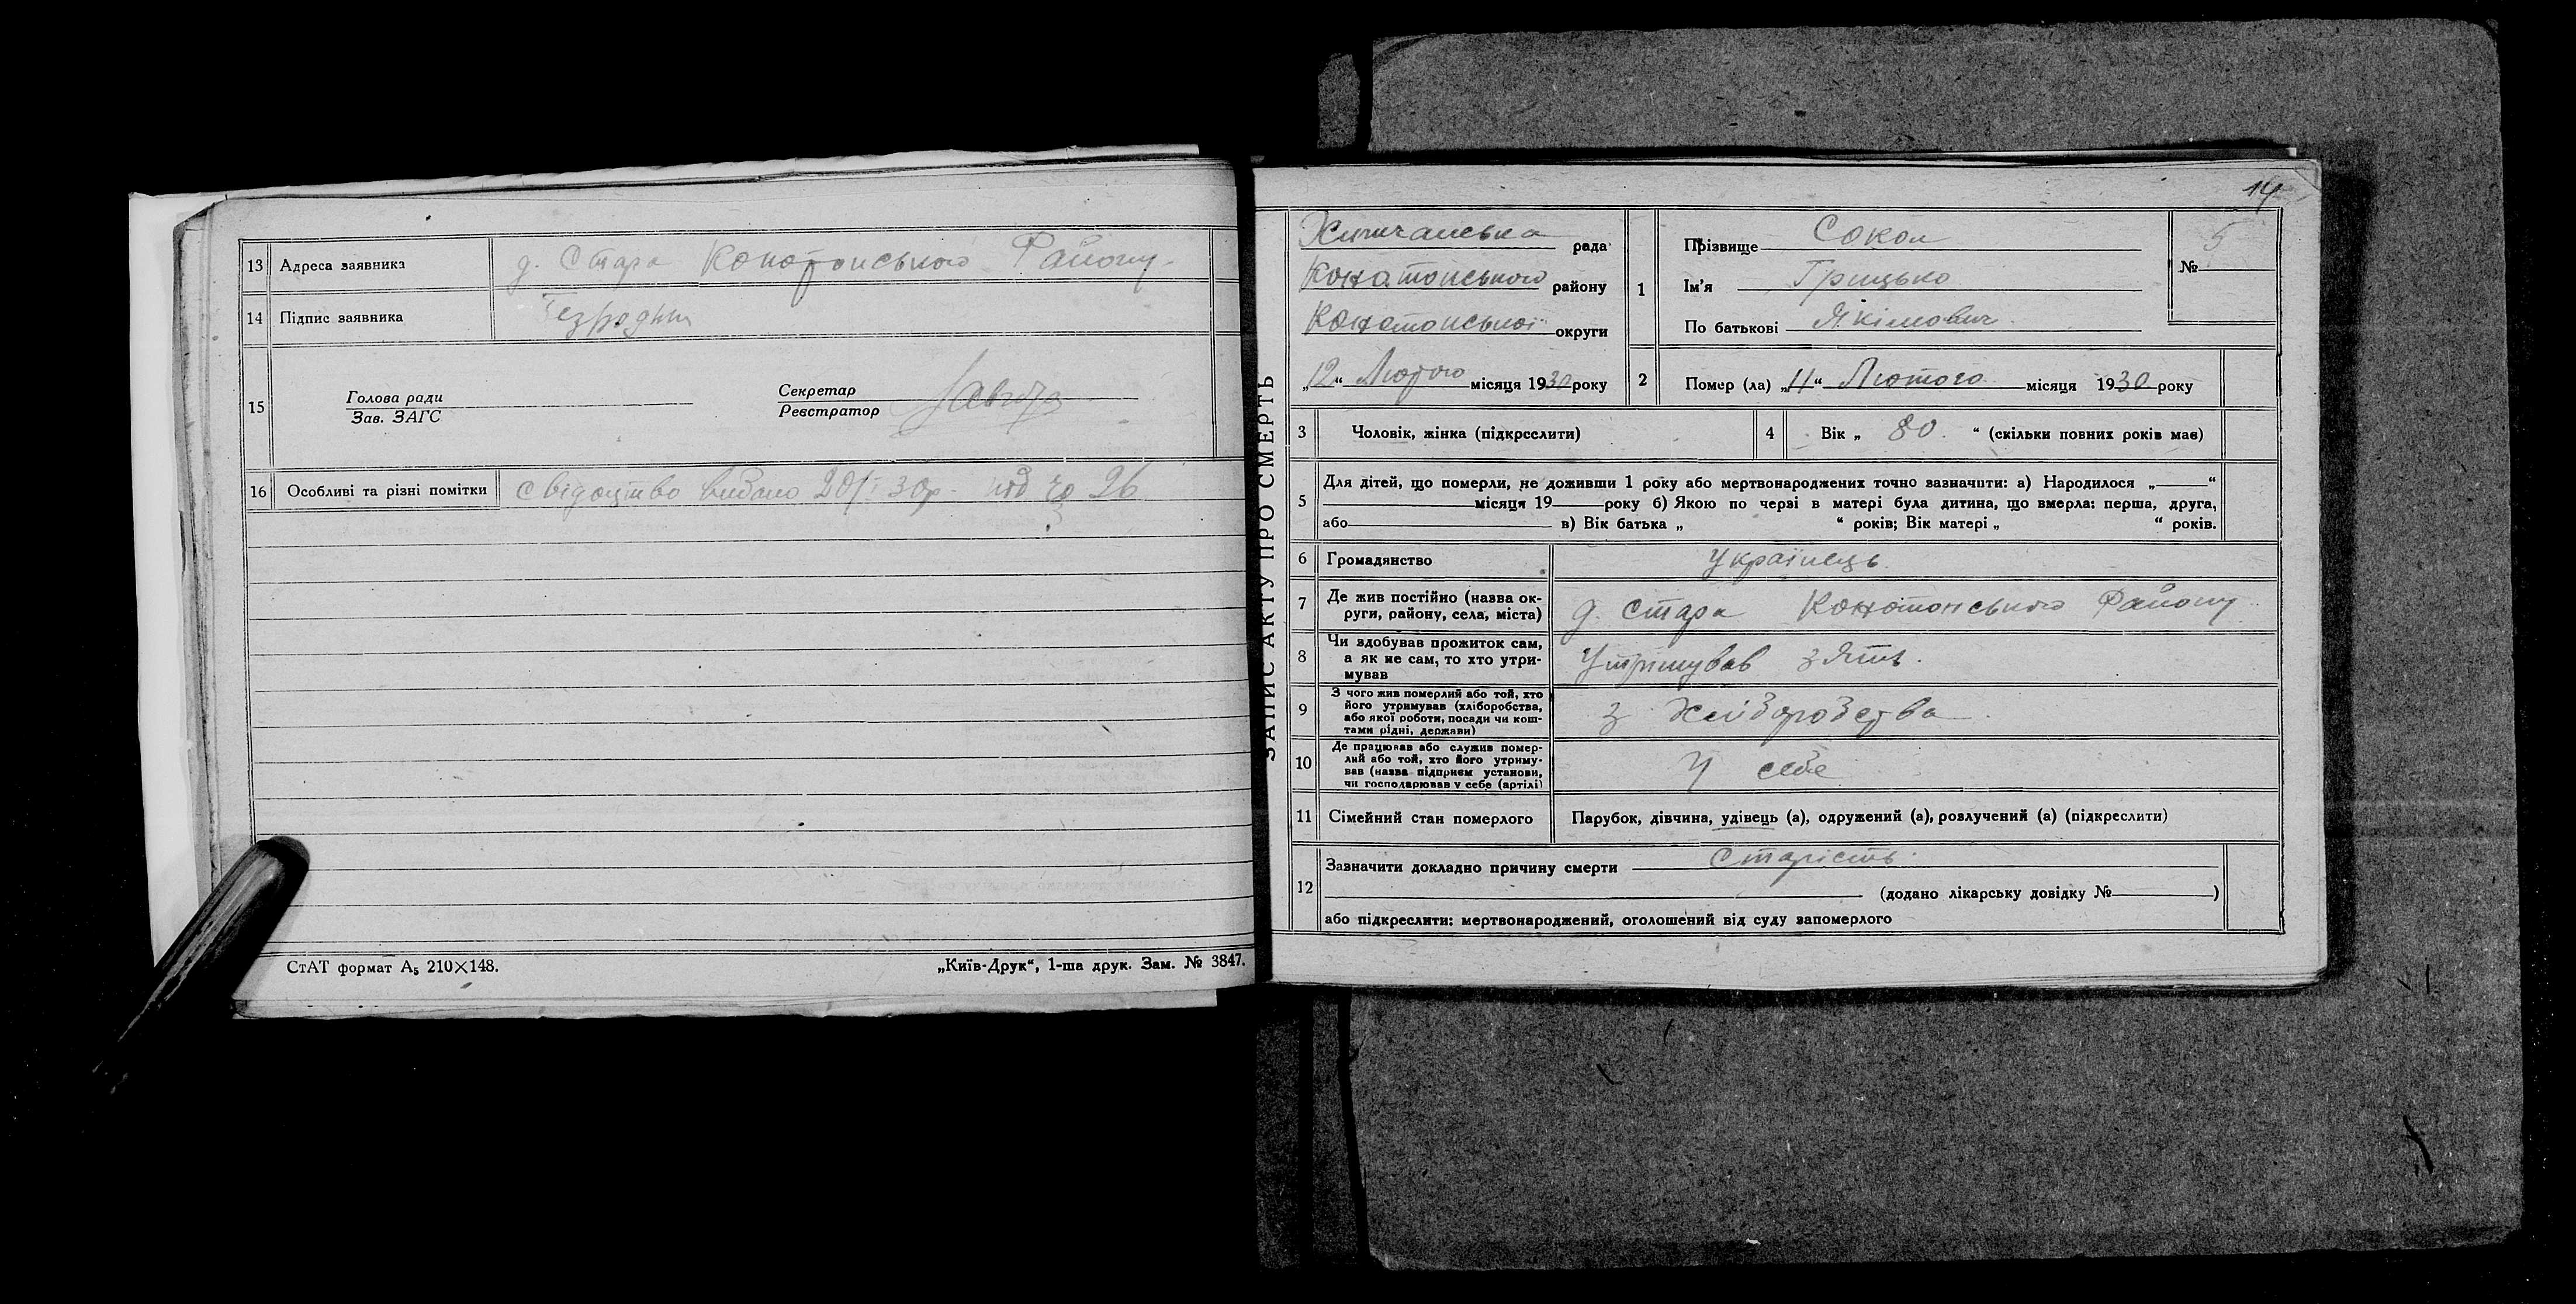 13 Адреса заявника д. Стара Конотопського Району
14 Підпис заявника
15 Голова ради
Зав. ЗАГС
Секретар
Реєстратор
16 Особливі та різні помітки свідоцтво видано 20/I 30р. 26
СтАТ формат А₅ 210×148.
„Київ-Друк“, 1-ша друк. Зам. № 3847.
ЗАПИС АКТУ ПРО СМЕРТЬ
14
рада
Конотопського району
Конотопської округи
„12“ Лютого місяця 1930 року
1 Прізвище Сокол
Ім'я Грицько
По батькові Якімович
№ 5
2 Помер (ла) „11“ Лютого місяця 1930 року
3 Чоловік, жінка (підкреслити)
4 Вік „ 80 “ (скільки повних років мав)
5 Для дітей, що померли, не доживши 1 року або мертвонароджених точно зазначити: а) Народилося „ “
місяця 19 року б) Якою по черзі в матері була дитина, що вмерла: перша, друга,
або в) Вік батька „ “ років; Вік матері „ “ років.
6 Громадянство Українець
7 Де жив постійно (назва ок-
руги, району, села, міста) д. Стара Конотопського Району
8 Чи здобував прожиток сам,
а як не сам, то хто утри-
мував Утрімував зять.
9 З чого жив померлий або той, хто
його утримував (хліборобства,
або якої роботи, посади чи кош-
тами рідні, держави) з хліборобства
10 Де працював або служив помер-
лий або той, хто його утриму-
вав (назва підприєм установи,
чи господарював у себе (артілі) У себе
11 Сімейний стан померлого Парубок, дівчина, удівець (а), одружений (а), розлучений (а) (підкреслити)
12 Зазначити докладно причину смерти Старість
(додано лікарську довідку № )
або підкреслити: мертвонароджений, оголошений від суду запомерлого